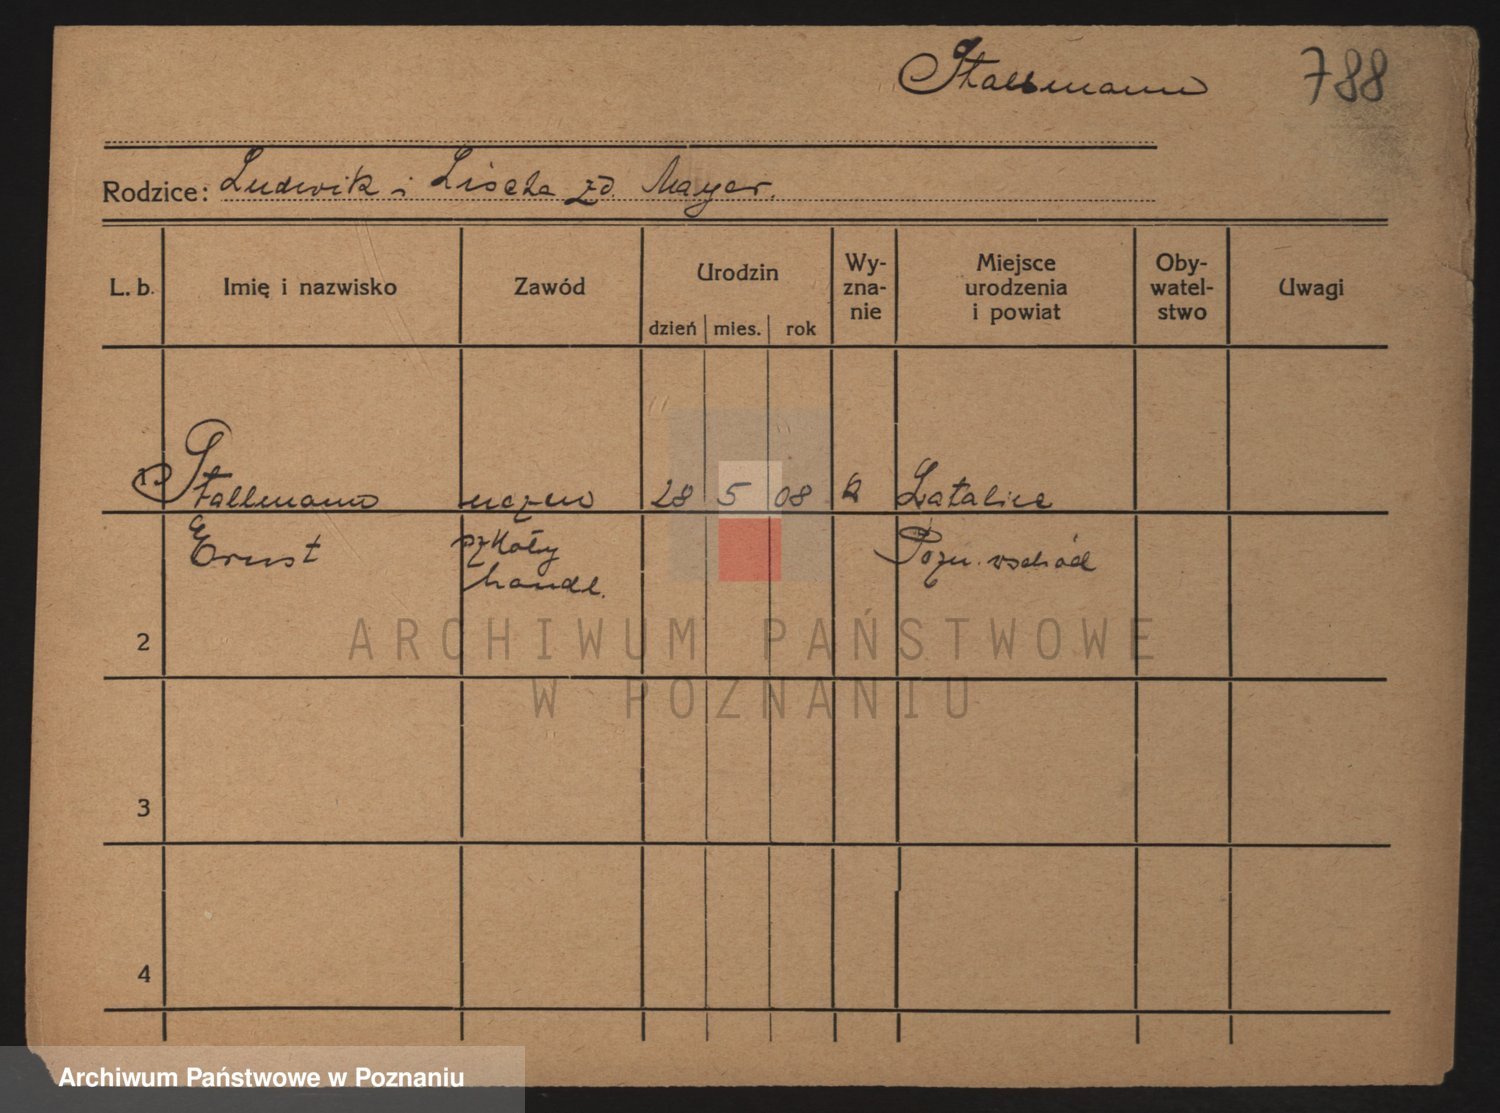 Stallmann 788
Rodzice: Ludwik i Lischa zd. Mayer.
L. b. Imię i nazwisko Zawód Urodzin dzień mies. rok Wy-zna-nie Miejsce urodzenia i powiat Oby-watel-stwo Uwagi
1 Stallmann uczeń 28 5 08 k Latalice
Ernst szkoły Pozn. wschód
handl.
2
ARCHIWUM PAŃSTWOWE
W POZNANIU
3
4
Archiwum Państwowe w Poznaniu